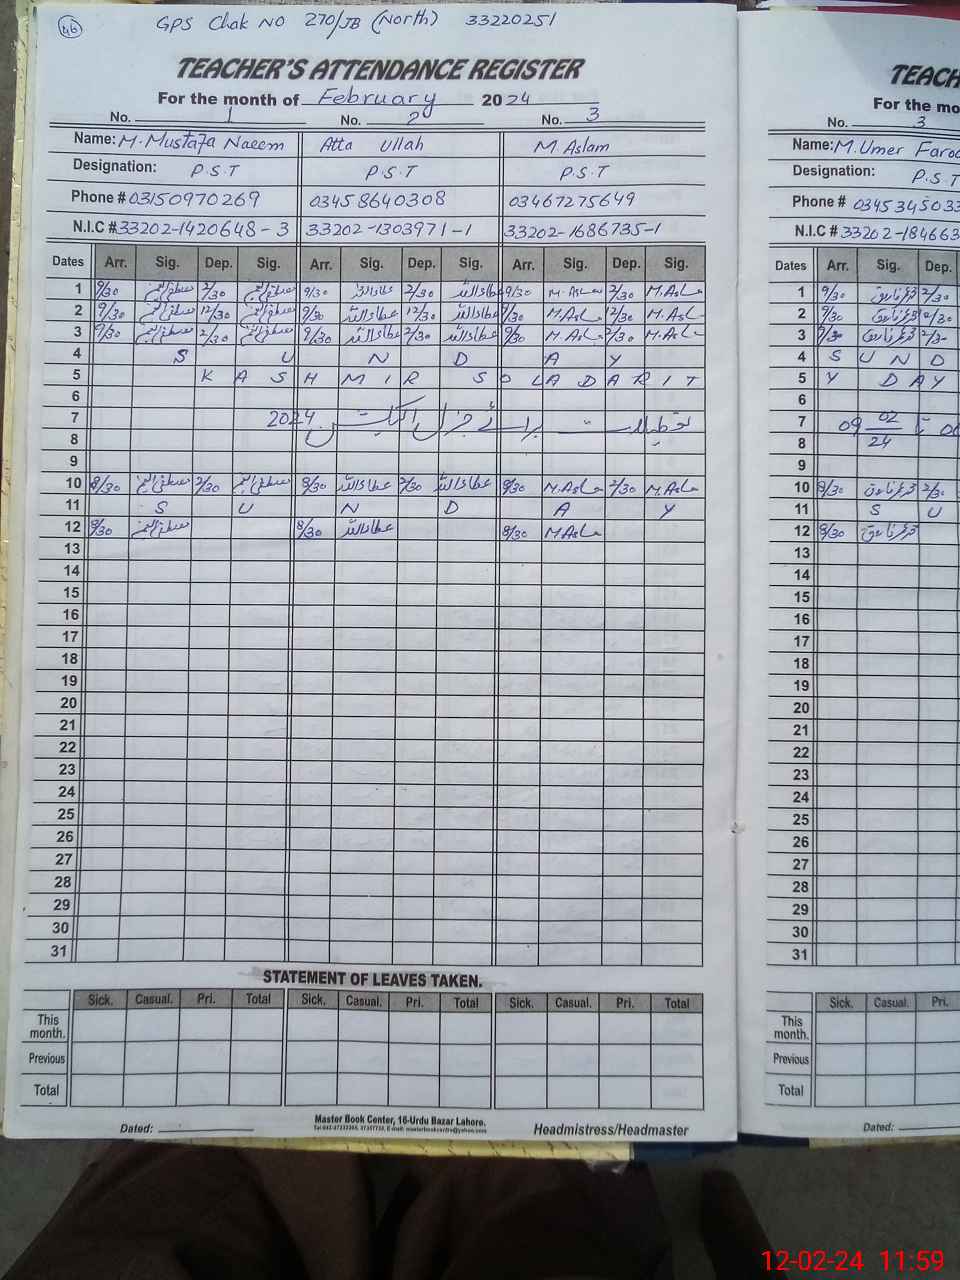 46
GPS Chak No 270/JB (North) 33220251
TEACHER'S ATTENDANCE REGISTER
For the month of February 2024
No. 1 No. 2 No. 3
Name: M. Mustafa Naeem Atta Ullah M. Aslam
Designation: P.S.T P.S.T P.S.T
Phone # 03150970269 03458640308 03467275649
N.I.C # 33202-1420648-3 33202-1303971-1 33202-1686735-1
Dates Arr. Sig. Dep. Sig. Arr. Sig. Dep. Sig. Arr. Sig. Dep. Sig.
1 9/30 2/30 9/30 عطاءاللہ 2/30 عطاءاللہ 9/30 M.Aslam 2/30 M.Aslam
2 9/30 12/30 9/30 عطاءاللہ 12/30 عطاءاللہ 9/30 M.Aslam 12/30 M.Aslam
3 9/30 2/30 9/30 عطاءاللہ 2/30 عطاءاللہ 9/30 M.Aslam 2/30 M.Aslam
4 S U N D A Y
5 K A S H M I R S O L A D A R I T
6
7 تعطیلات برائے جنرل الیکشن 2024
8
9
10 8/30 2/30 8/30 عطاءاللہ 2/30 عطاءاللہ 8/30 M.Aslam 2/30 M.Aslam
11 S U N D A Y
12 8/30 8/30 عطاءاللہ 8/30 M.Aslam
13
14
15
16
17
18
19
20
21
22
23
24
25
26
27
28
29
30
31
STATEMENT OF LEAVES TAKEN.
Sick. Casual. Pri. Total Sick. Casual. Pri. Total Sick. Casual. Pri. Total
This month.
Previous
Total
Dated:
Master Book Center, 16-Urdu Bazar Lahore.
Headmistress/Headmaster
TEACH
For the mo
No. 3
Name: M. Umer Faroo
Designation: P.S.T
Phone # 034534503
N.I.C # 33202-184663
Dates Arr. Sig. Dep.
1 9/30 2/30
2 9/30
3 9/30 2/30
4 S U N D
5 Y D A Y
6
7 09 02
8 24
9
10 8/30 2/30
11 S U
12 8/30
13
14
15
16
17
18
19
20
21
22
23
24
25
26
27
28
29
30
31
Sick. Casual. Pri.
This month.
Previous
Total
Dated:
12-02-24 11:59